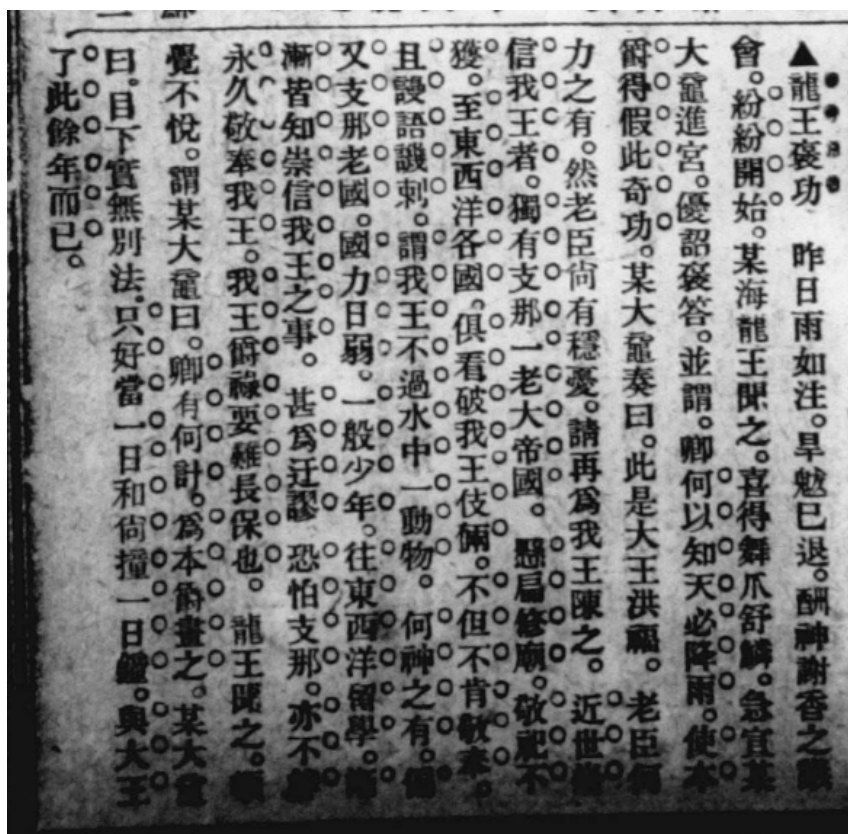 ▲龍王褒功　昨日雨如注。旱魃已退。酬神謝香之議
會。紛紛開始。某海龍王聞之。喜得舞爪舒鱗。急宣某
大黿進宮。優詔褒答。並謂。卿何以知天必降雨。使本
爵得假此奇功。某大黿奏曰。此是大王洪福。老臣何
力之有。然老臣尙有穩憂。請再爲我王陳之。近世
信我王者。獨有支那一老大帝國。懸扁修廟。敬祀不
獲。至東西洋各國。俱看破我王伎倆。不但不肯敬奉。
且謾語譏刺。謂我王不過水中一動物。何神之有。
又支那老國。國力日弱。一般少年。往東西洋留學。
漸皆知崇信我王之事。甚爲迂謬　恐怕支那。亦不
永久敬奉我王。我王爵祿要難長保也。龍王聞之。
覺不悅。謂某大黿曰。卿有何計。爲本爵畫之。某大黿
曰。目下實無別法。只好當一日和尙撞一日鐘。與大王
了此餘年而已。